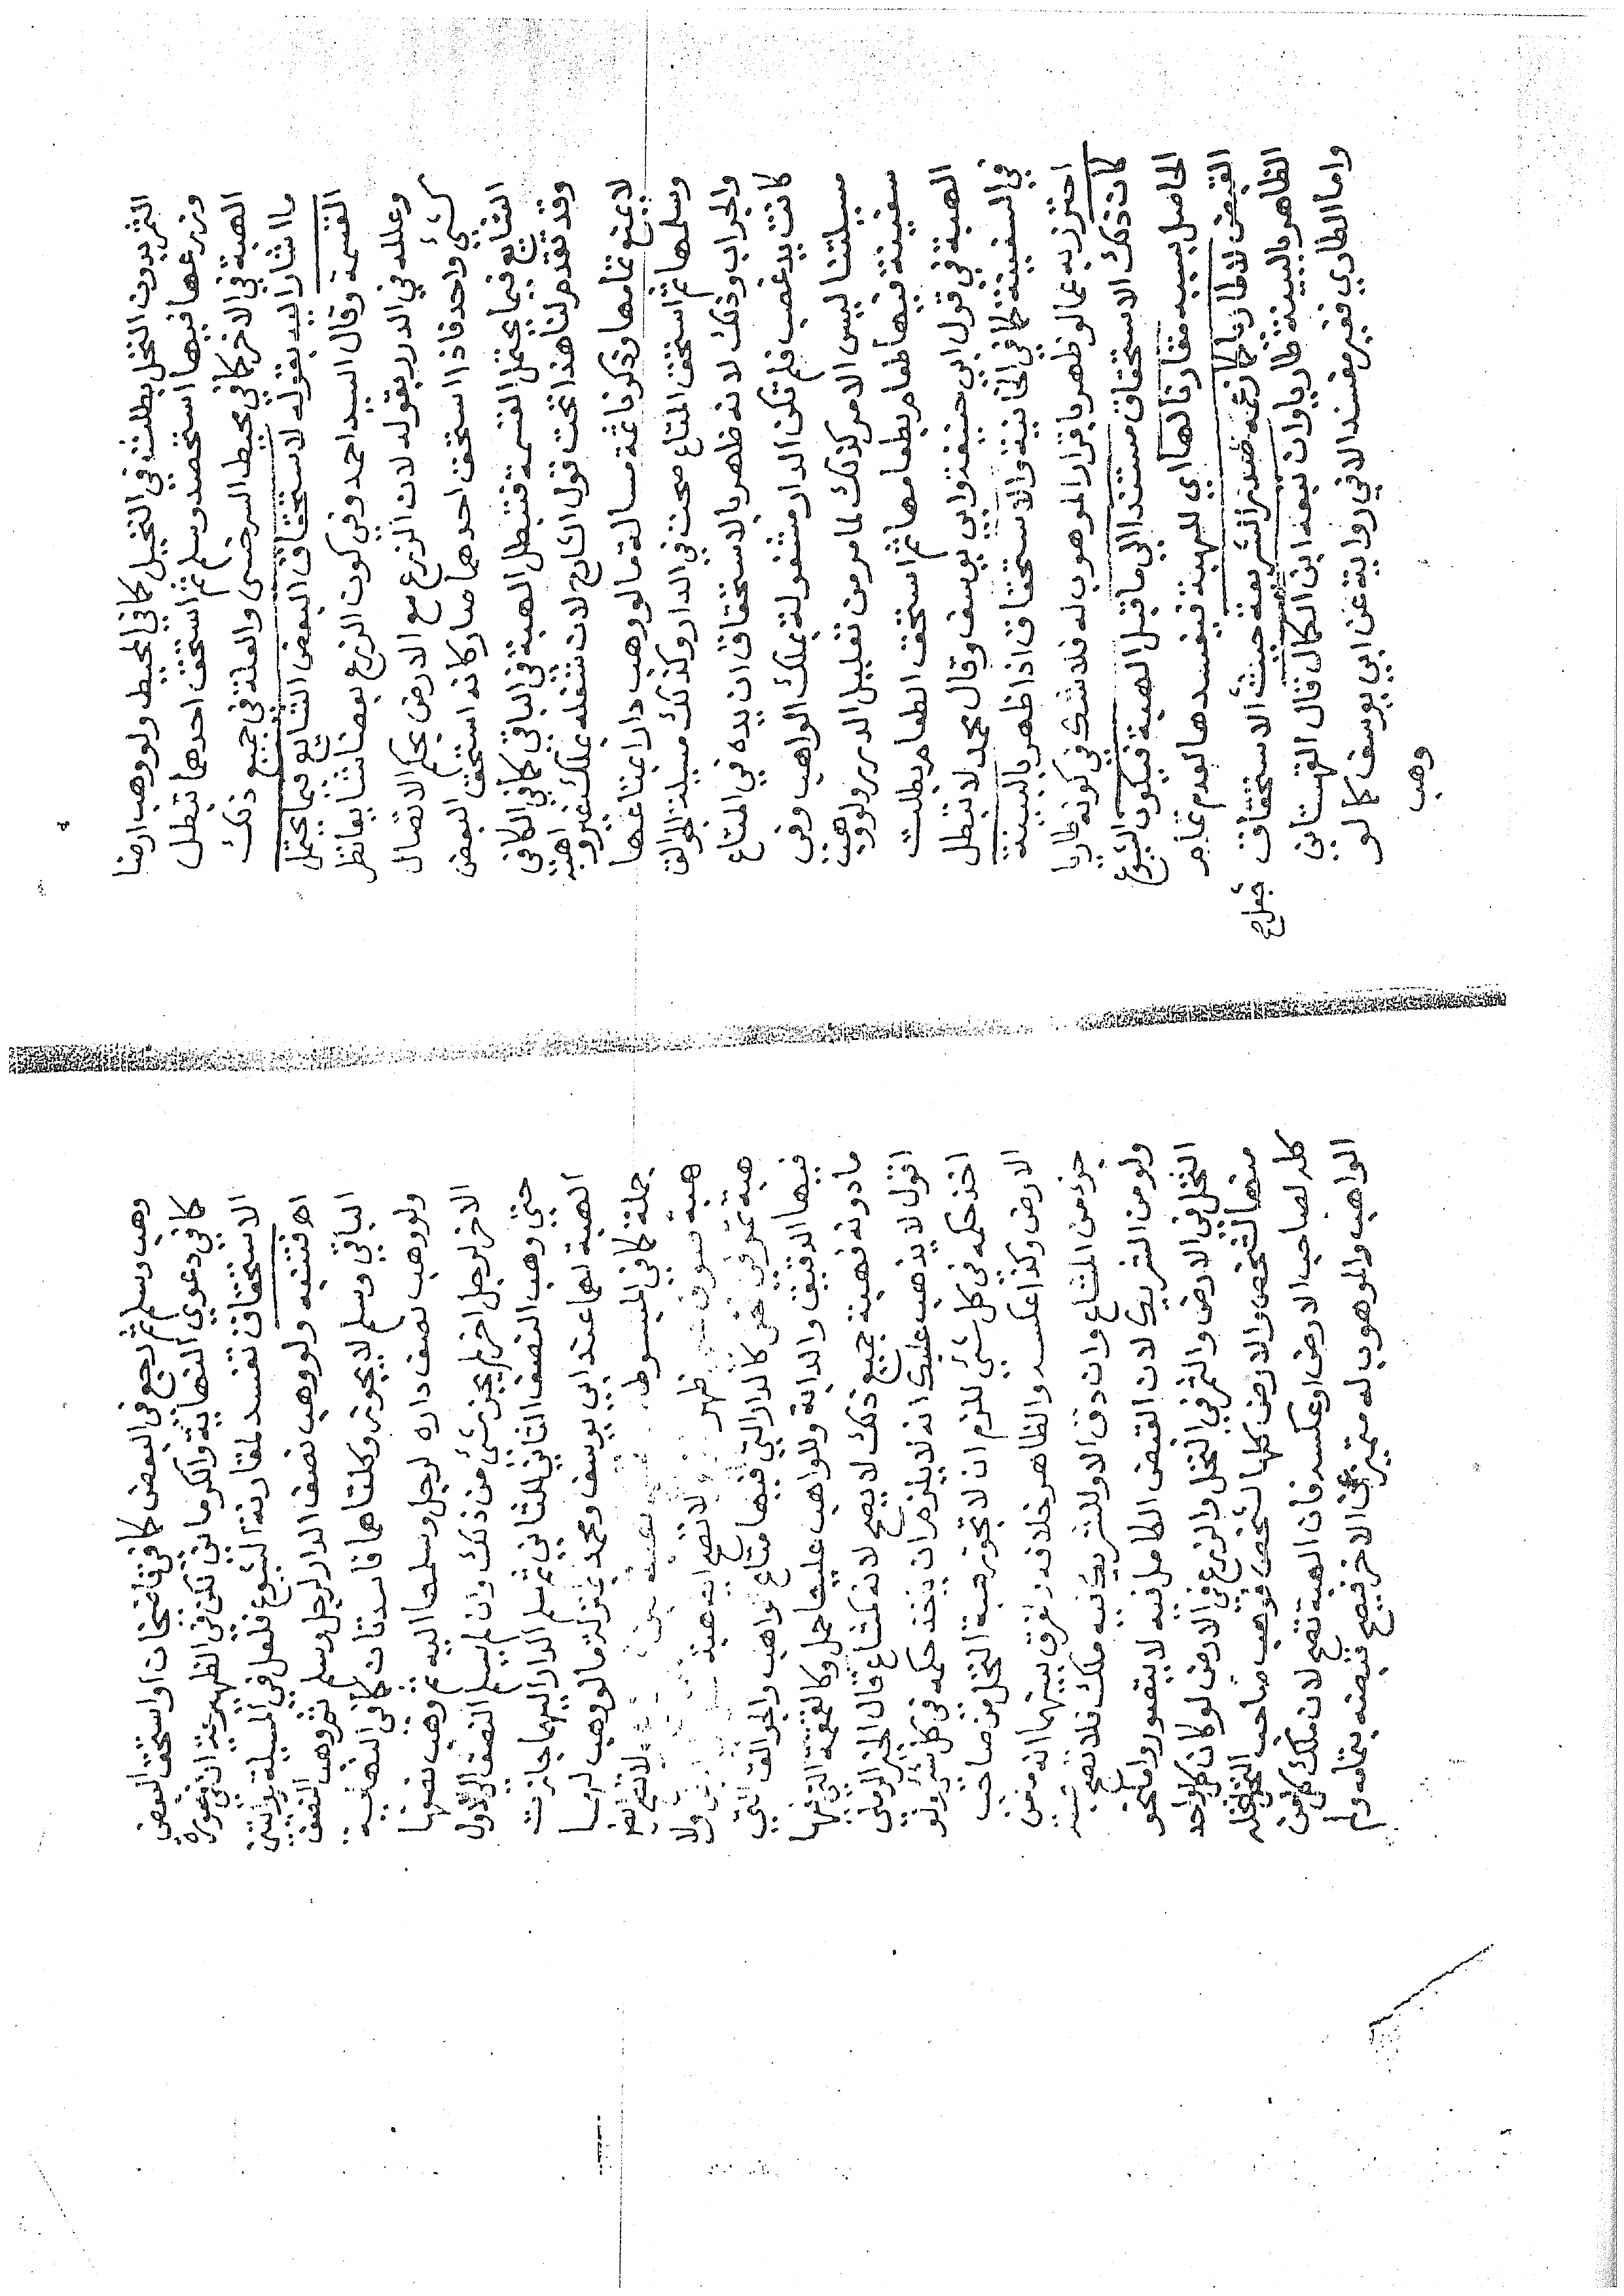 الثمر بدون النخل بطلت في النخيل كما في المحيط ولو وهب ارضا
وزرعها فيها استحصد وسلم ثم استحق احدهما تبطل
الهبة في الاخر كما في محيط السرخسي والعلة في جميع ذلك
ما اشار اليه بقوله لاستحقاق البعض الشايع فيما يحتمل
القسمة وقال السيد احمد وفي كون الزرع بعضا شايعا نظر
وعلله في الدرر بقوله لان الزرع مع الارض بحكم الاتصال
كشيء واحد فاذا استحق احدهما صار كانه استحق البعض
الشايع فيما يحتمل القسمة فتبطل الهبة في الباقي كما في الكافي
وقد تقدم لنا هذا تحت قول الشارح لان شغله بملك غير واهبه
لا يمنع تمامها وذكرنا ثمة مسالة ما لو وهب دارا بمتاعها
وسلمها ثم استحق المتاع صحت في الدار وكذلك مسيلة الجوالق
والجراب وذلك لانه ظهر بالاستحقاق ان يده في المتاع
كانت يد غصب فلم تكن الدار مشغولة بملك الواهب وفي
مسيلتنا ليس الامر كذلك لما مر من تعليل الدرر ولو وهب
سفينة فيها طعام بطعامها ثم استحق الطعام بطلت
الهبة في قول ابي حنيفة وابي يوسف وقال محمد لا تبطل
في السفينة كما في الخانية والاستحقاق اذا ظهر بالبينة
احترز به عما لو ظهر باقرار الموهوب له فلا شك في كونه طاريا
كان ذلك الاستحقاق مستندا الى ما قبل الهبة فيكون الشيوع
الحاصل بسببه مقارنا لها اي للهبة فيفسدها لعدم تمام
القبض لا طاريا كما زعمه صدر الشريعة حيث الاستحقاق
جعل صح
الظاهر بالبينة طاريا وان تبعه ابن الكمال قال القهستاني
واما الطاري فغير مفسد الا في رواية عن ابي يوسف كما لو
وهب
وهب وسلم ثم رجع في البعض كما في قاضيخان او استحق البعض
كما في دعوى النهاية والكرماني لكن في الظهيرية ان في صورة
الاستحقاق تفسد لمقارنة الشيوع فلعل في المسيلة روايتين
اه فتنبه ولو وهب نصف الدار لرجل وسلم ثم وهب النصف
الباقي وسلم لا يجوز وكلتاهما فاسدتان كما في النهاية
ولو وهب نصف داره لرجل وسلمها اليه ثم وهب نصفها
الاخر لرجل اخر لم يجز شئ من ذلك وان لم يسلم النصف الى الاول
حتى وهب النصف الثاني للثاني ثم سلم الدار اليهما جازت
الهبة لهما عند ابي يوسف ومحمد بمنزلة ما لو وهب لهما
جملة كما في المبسوط لا تتم
هبة ظهر ولا تصح هبة ولا
هبة تمر في نخل كالدار التي فيها متاع لواهب والجوالق التي
فيها الدقيق والدابة وللواهب عليها حمل وكالقمقمة التي فيها
ما دونه فهبة جميع ذلك لا يصح لانه كمشاع قال الخير الرملي
اقول لا يذهب عليك انه لا يلزم ان ياخذ حكمه في كل شئ ولو
اخذ حكمه في كل شئ للزم ان لا تجوز هبة النخل من صاحب
الارض وكذا عكسه والظاهر خلافه والفرق بينهما انه ما من
جزء من المشاع وان دق الا وللشريك فيه ملك فلا تصح هبته
ولو من الشريك لان القبض الكامل فيه لا يتصور واما نحو
النخل في الارض والثمر في النخل والزرع في الارض لو كان كل واحد
منها لشخص والارض كلها لشخص فوهب صاحب النخل نخله
كله لصاحب الارض او عكسه فان الهبة تصح لان ملك كل من
الواهب والموهوب له متميز عن الاخر فيصح قبضه بتمامه ولم